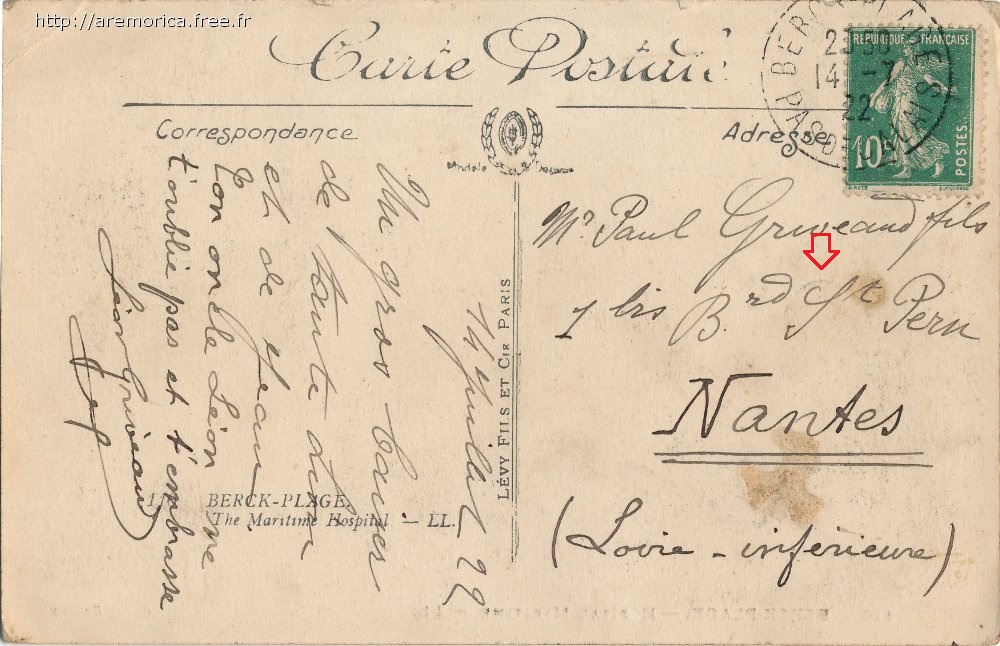 http://aremorica.free.fr
Carte Postale
BERCK-PLAGE
PAS DE CALAIS
14 -7
22
REPUBLIQUE FRANÇAISE
10
POSTES
Correspondance
Adresse
14 juillet 22
Un gros baiser
de tante
et de Jean.
Ton oncle Léon ne
t'oublie pas et t'embrasse
Léon Griveaud
LÉVY FILS ET Cie PARIS
BERCK-PLAGE.
The Maritime Hospital — LL.
Mr Paul Griveaud fils
1 bis B.rd St Pern
Nantes
(Loire-inférieure)